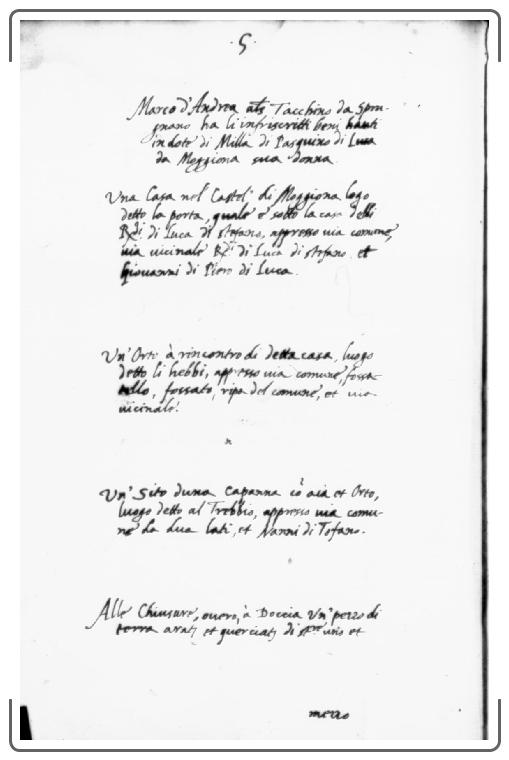 .5.
Marco d'Andrea als Tacchino da Spru-
gnano ha li infrascritti beni hauti
in dote di Milla di Pasquino di Luca
da Moggiona sua donna
Una Casa nel Castel di Moggiona logo
detto la porta, quale è sotto la casa delli
Rdi. di Luca di stefano, appresso uia comune,
uia uicinale Rdi. di Luca di stefano et
Giouanni di Piero di Luca.
Un' Orto à rincontro di detta casa, luogo
detto li hebbi, appresso uia comune, fossa-
tello, fossato, ripa del comune, et uia
uicinale.
Un' Sito duna Capanna cō aia et Orto,
luogo detto al Trebbio, appresso uia comu-
ne da dua lati, et Nanni di Tofano.
Alle Chiusure, ouero, à Doccia Un' pezzo di
terra arat. et querciat. di uno et
mezzo